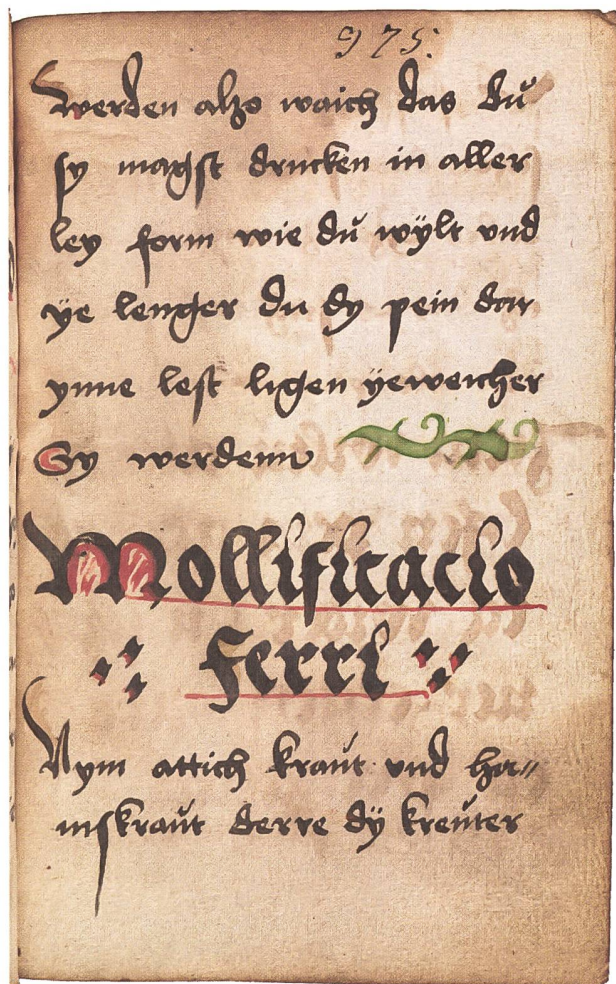 975.
werden alzo waich das dŭ
sy magst drucken in aller
ley form wie dŭ wÿlt vnd
ÿe lenger du dy pein dar
ynne lest ligen ÿeweicher
Sy werdenn
Mollificacio
Ferri
Nym attich kraŭt vnd ha〃
nskraŭt derre dÿ kreŭter